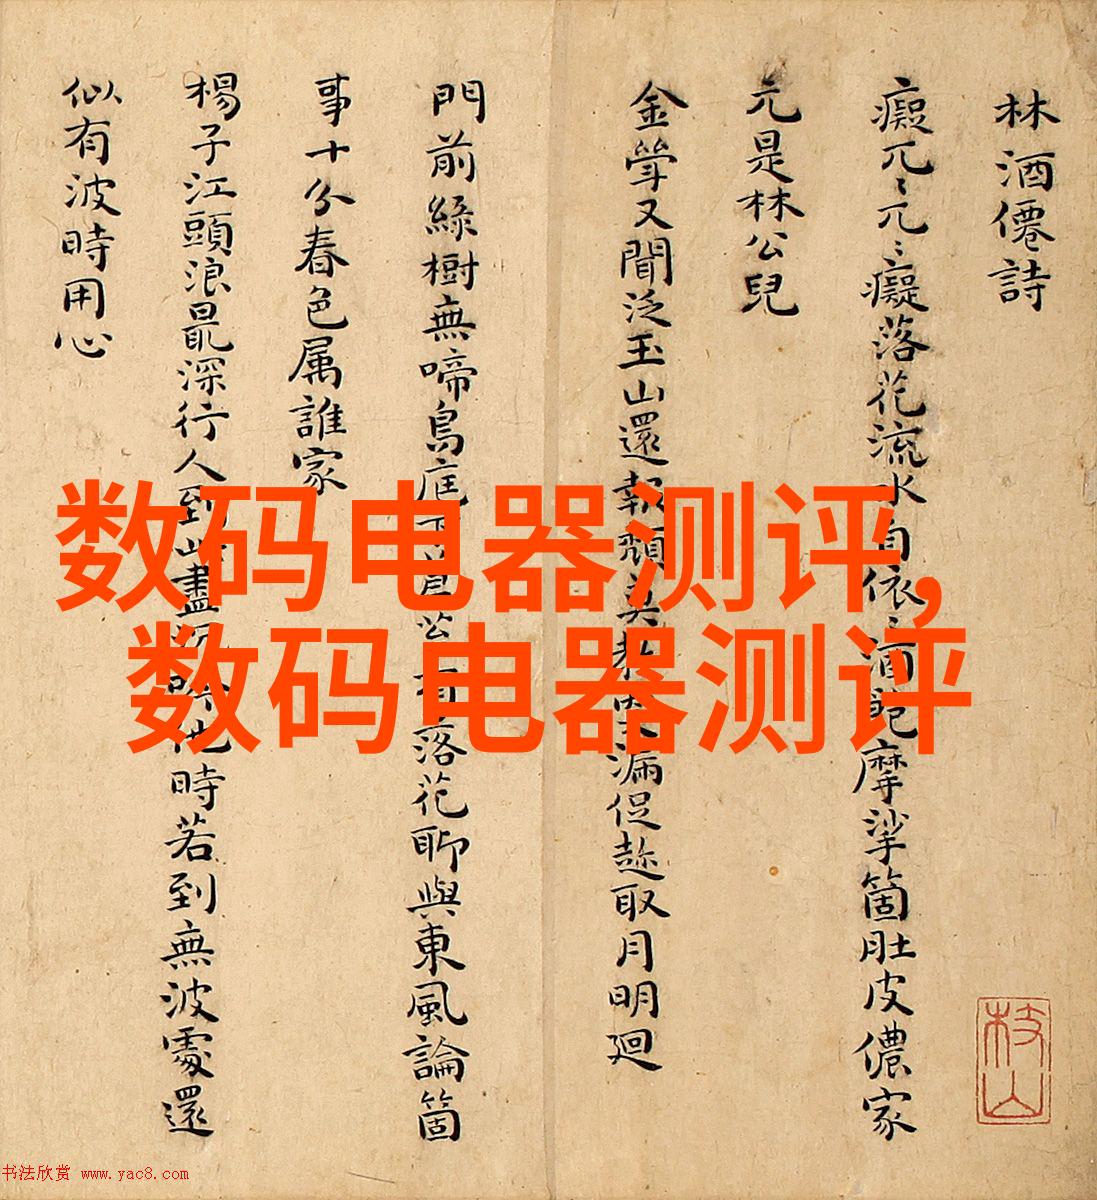 林酒僊詩
癡兀〻兀〻癡落花流水自依〻酒飽摩挲箇肚皮儂家
元是林公兒
金斝又聞泛玉山還報頹莫教更漏促趁取月明廻
門前綠樹無啼鳥庭下落花聊與東風論箇
事十分春色属誰家
楊子江頭浪最深行人到此盡他時若到無波處還
似有波時用心
枝山
数码电器测评,
数码电器测评
书法欣赏 www.yac8.com